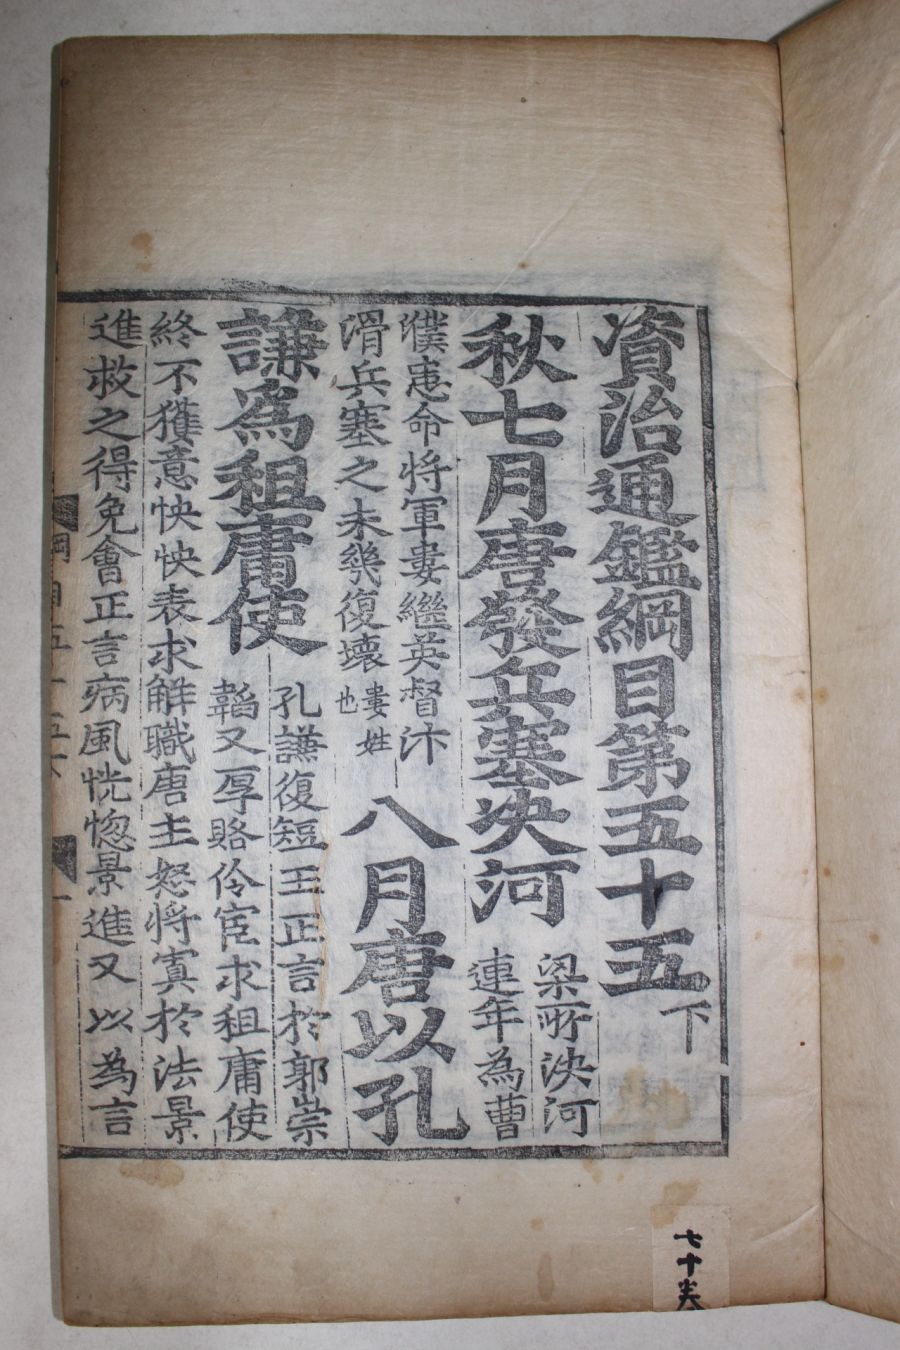 資治通鑑綱目第五十五下
秋七月唐發兵塞决河
梁所决河
連年為曹
濮患命將軍婁繼英督汴
滑兵塞之未幾復壞
婁姓
也
八月唐以孔
謙爲租庸使
孔謙復短王正言於郭崇
韜又厚賂伶宦求租庸使
終不獲意怏怏表求解職唐主怒將寘於法景
進救之得免會正言病風恍惚景進又以為言
七十卷